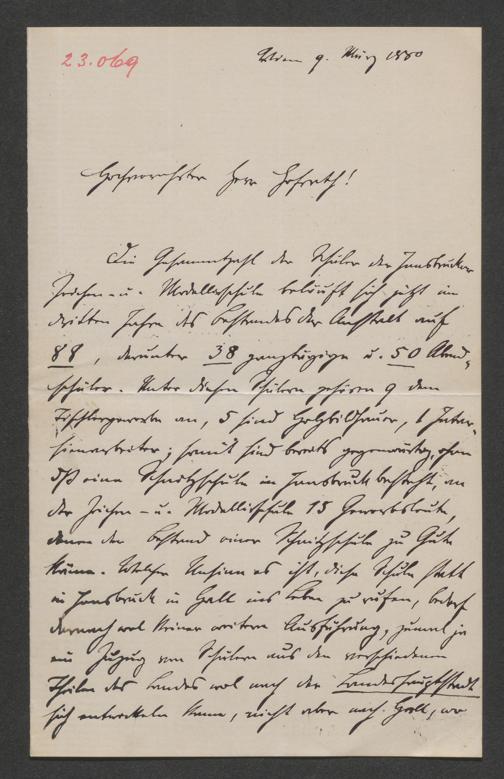 23.069
Wien 9. März 1880
Hochverehrter Herr Hofrath!
Die Gesammtzahl der Schüler der Innsbrucker
Zeichen- u. Modellierschule beläuft sich jetzt im
dritten Jahre des Bestandes der Anstalt auf
88, darunter 38 ganztägige u. 50 Abend-
schüler. Unter diesen Schülern gehören 9 dem
Tischlergewerbe an, 5 sind Holzbildhauer, 1 Intar-
sienarbeiter; somit sind bereits gegenwärtig, ohne
daß eine Schnitzschule in Innsbruck besteht, an
der Zeichen- u. Modellierschule 15 Gewerbsleute,
denen der Bestand einer Schnitzschule zu Gute
käme. Welcher Unsinn es ist, diese Schule statt
in Innsbruck in Hall ins Leben zu rufen, bedarf
darnach wol keiner weitern Ausführung, zumal ja
ein Zuzug von Schülern aus den verschiedenen
Theilen des Landes wol nach der Landeshauptstadt
sich entwickeln kann, nicht aber nach Hall, wo